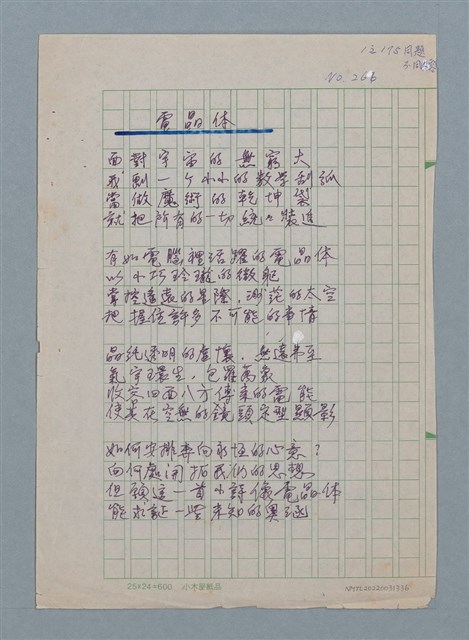 與175同題
不同內容
NO. 206
電晶体
面對宇宙的無窮大
我劃一个小小的数学刮弧
當做魔術的乾坤袋
就把所有的一切統々裝進
有如電腦裡活躍的電晶体
以小巧玲瓏的微軀
掌控遙遠的星際，渺茫的太空
把握住許多不可能的事情
晶純透明的虛懷，無遠弗至
氣宇環生，包羅萬象
收容四面八方傳來的電能
使其在空無的鏡頭定型顯影
如何安排奔向永恒的心意？
向何處開拓我們的思想
但願這一首小詩像電晶体
能求証一些未知的異涵
25×24=600 小木屋紙品